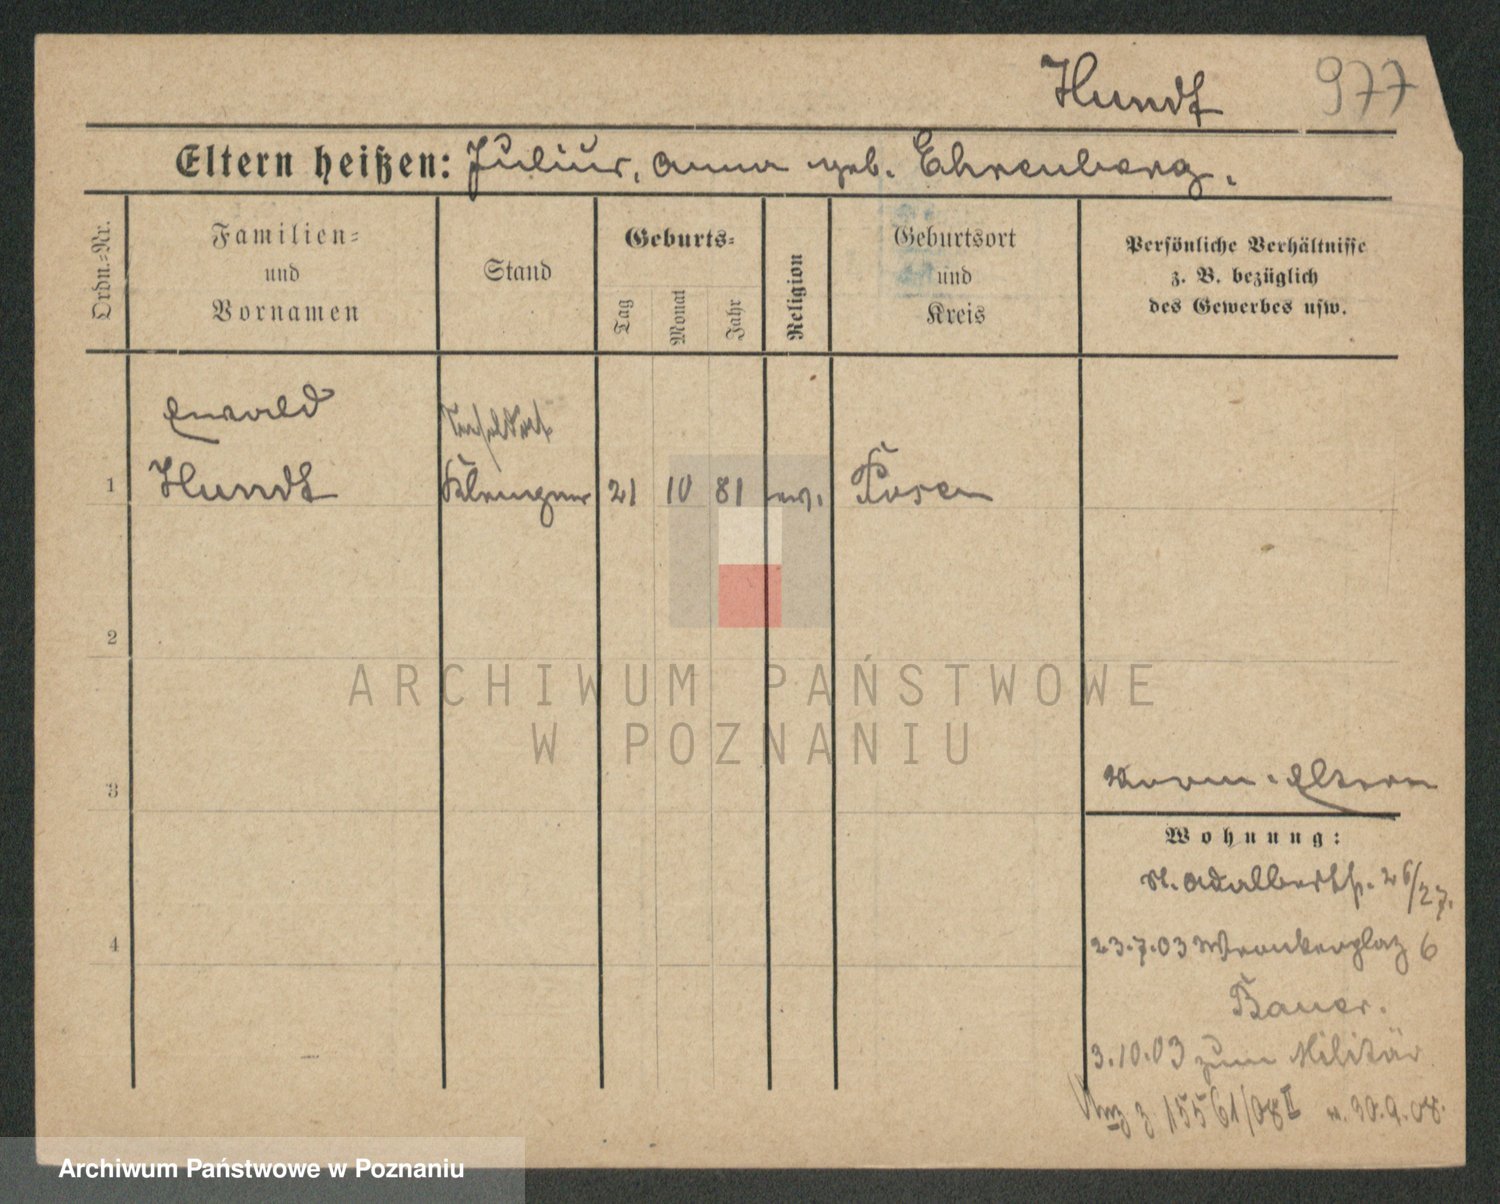 Hundt 977
Eltern heißen: Julius, Anna geb. Ehrenberg.
Ordn.=Nr.
Familien=
und
Vornamen
Stand
Geburts=
Tag
Monat
Jahr
Religion
Geburtsort
und
Kreis
Persönliche Verhältnisse
z. B. bezüglich
des Gewerbes usw.
Ewald
1 Hundt Klempner 21 10 81 ev. Posen
2
ARCHIWUM PAŃSTWOWE
W POZNANIU
3
Eltern
Wohnung:
St. Adalbertstr. 26/27.
4
23.7.03 Wronkerplatz 6
Bauer.
3.10.03 zum Militär
15561/08 II v. 30.9.08.
Archiwum Państwowe w Poznaniu